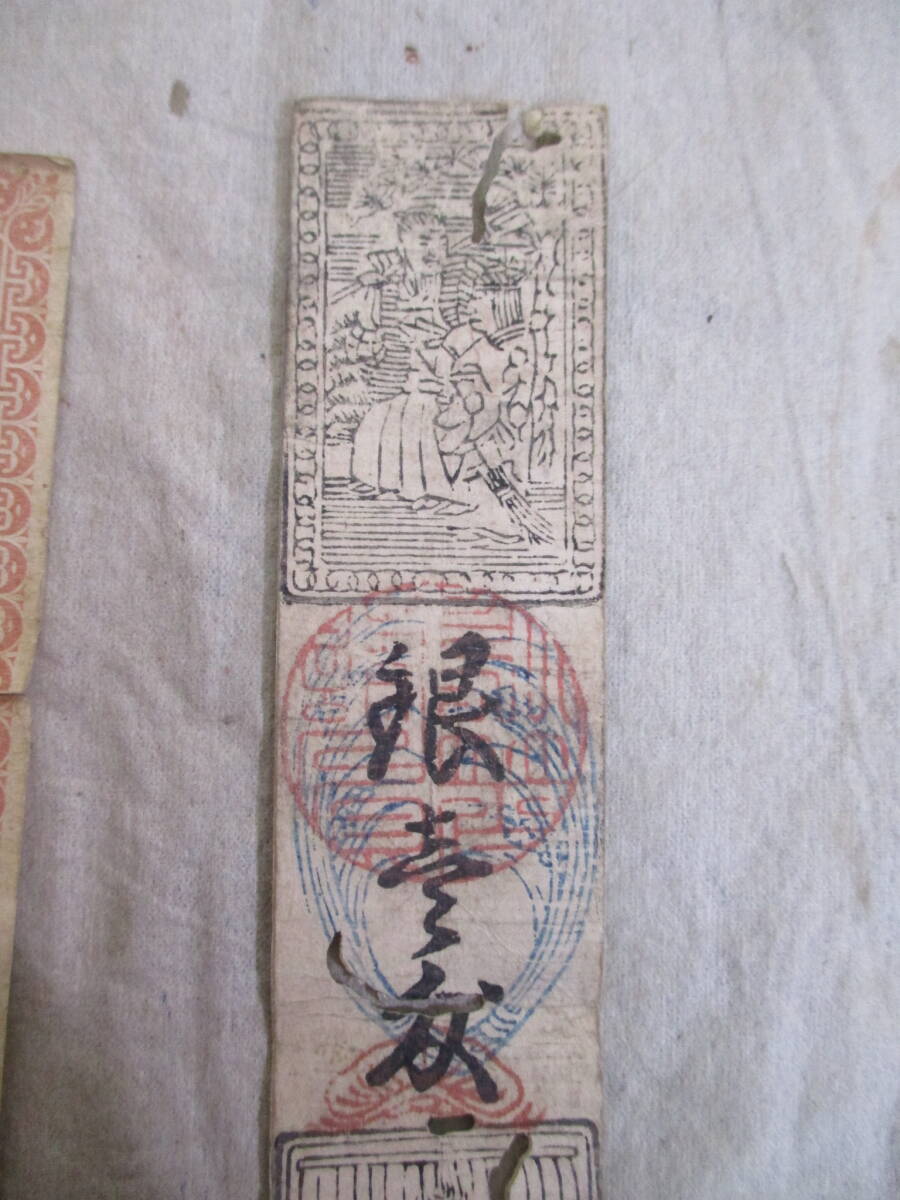 銀壹匁